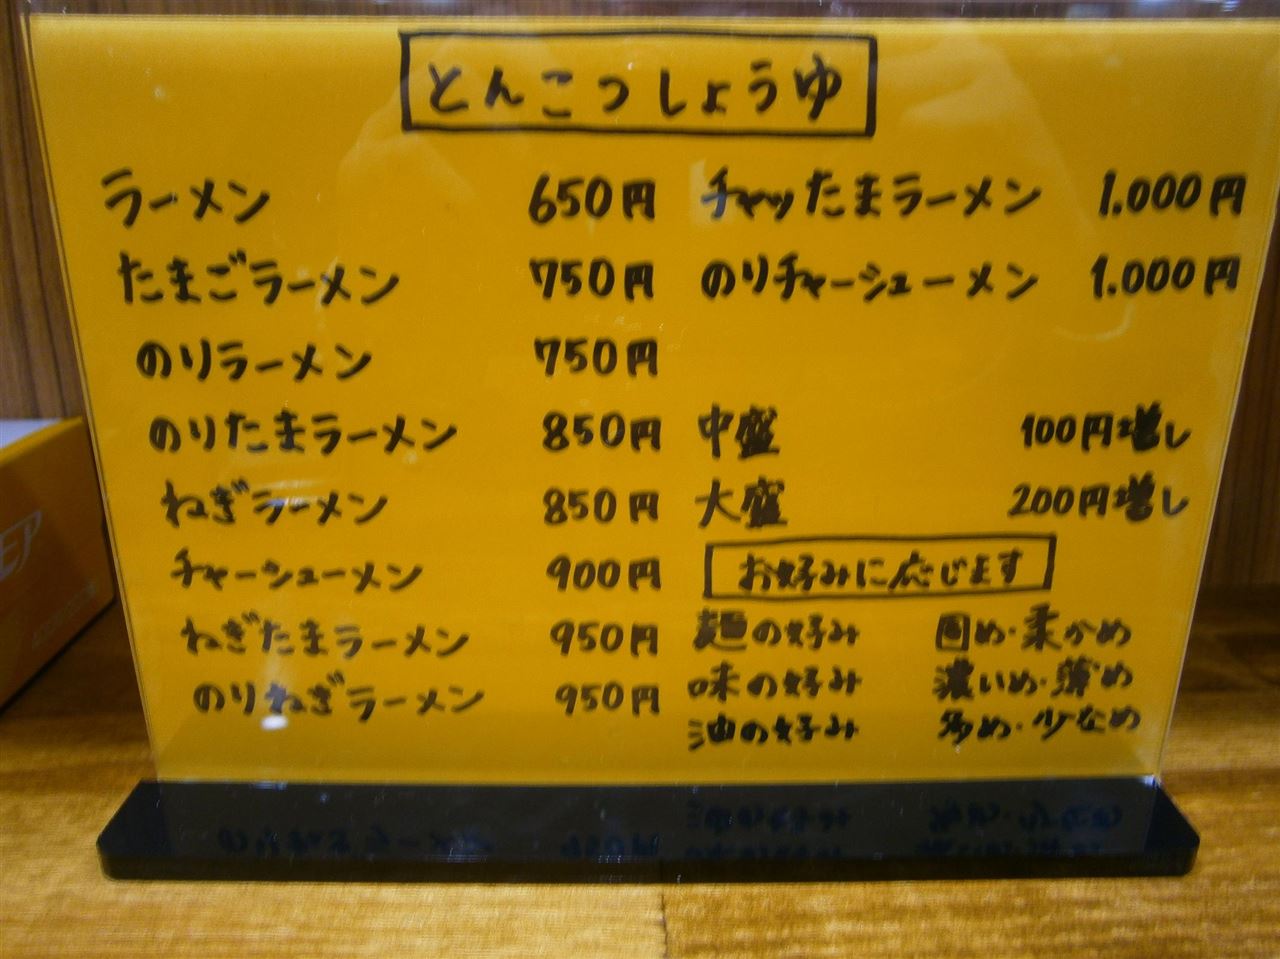 とんこつしょうゆ
ラーメン 650円
たまごラーメン 750円
のりラーメン 750円
のりたまラーメン 850円
ねぎラーメン 850円
チャーシューメン 900円
ねぎたまラーメン 950円
のりねぎラーメン 950円
チャッたまラーメン 1.000円
のりチャーシューメン 1.000円
中盛 100円増し
大盛 200円増し
お好みに応じます
麺の好み 固め・柔かめ
味の好み 濃いめ・薄め
油の好み 多め・少なめ